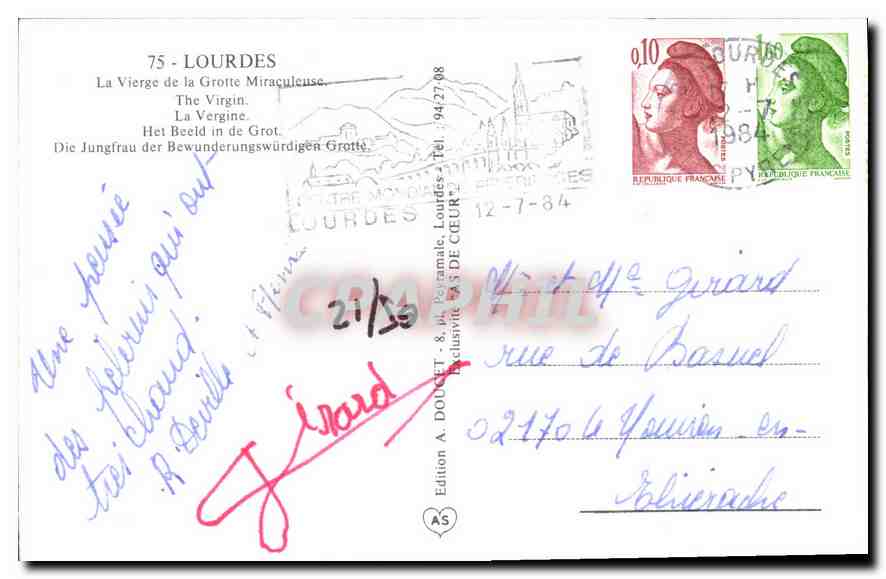 75 - LOURDES
La Vierge de la Grotte Miraculeuse.
The Virgin.
La Vergine.
Het Beeld in de Grot.
Die Jungfrau der Bewunderungswürdigen Grotte.
Une pensée
des pèlerins qui ont
très chaud.
R Deville et
Gérard
21/30
CENTRE MONDIAL DE PELERINAGES
LOURDES 12-7-84
Edition A. DOUCET - 8, pl. Peyramale, Lourdes - Tél. : 94/27-08
Exclusivité "AS DE CŒUR"
AS
0,10
POSTES
REPUBLIQUE FRANÇAISE
1,60
POSTES
REPUBLIQUE FRANÇAISE
LOURDES
H
12-7
1984
PYR
Mr et Me Girard
rue de Basuel
02170 le Nouvion-en-
Thiérache
CPAPHIL